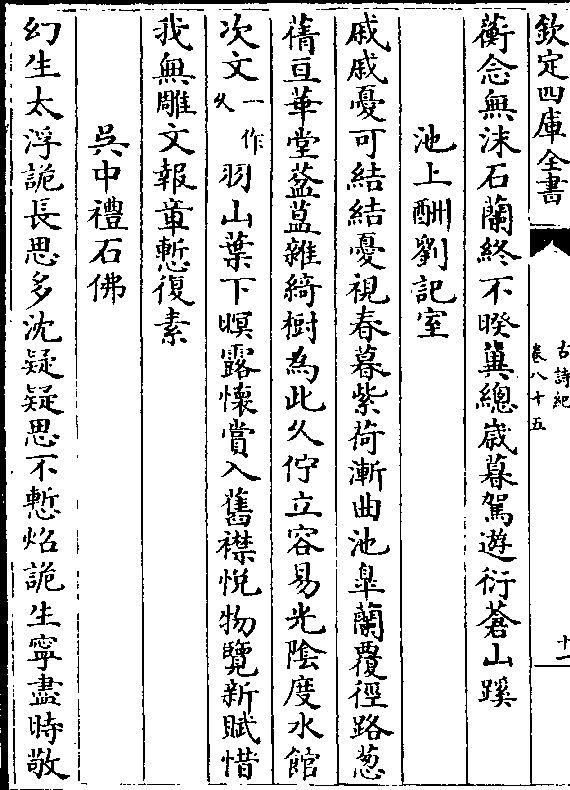 欽定四庫全書
古詩紀
卷八十五
十一
蘅念無沫石蘭終不暌冀總歲暮駕遊衍蒼山蹊
池上酬劉記室
戚戚憂可結結憂視春暮紫荷漸曲池臯蘭覆徑路葱
蒨亘華堂葢葢雜綺樹為此久佇立容易光陰度水館
次文一作久羽山葉下暝露懷賞入舊襟悦物覽新賦惜
我無雕文報章慙復素
吳中禮石佛
幻生太浮詭長思多沈疑疑思不慙炤詭生寧盡時敬